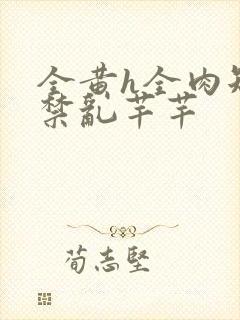 全黄h全肉短
禁乱芊芊
荀志坚